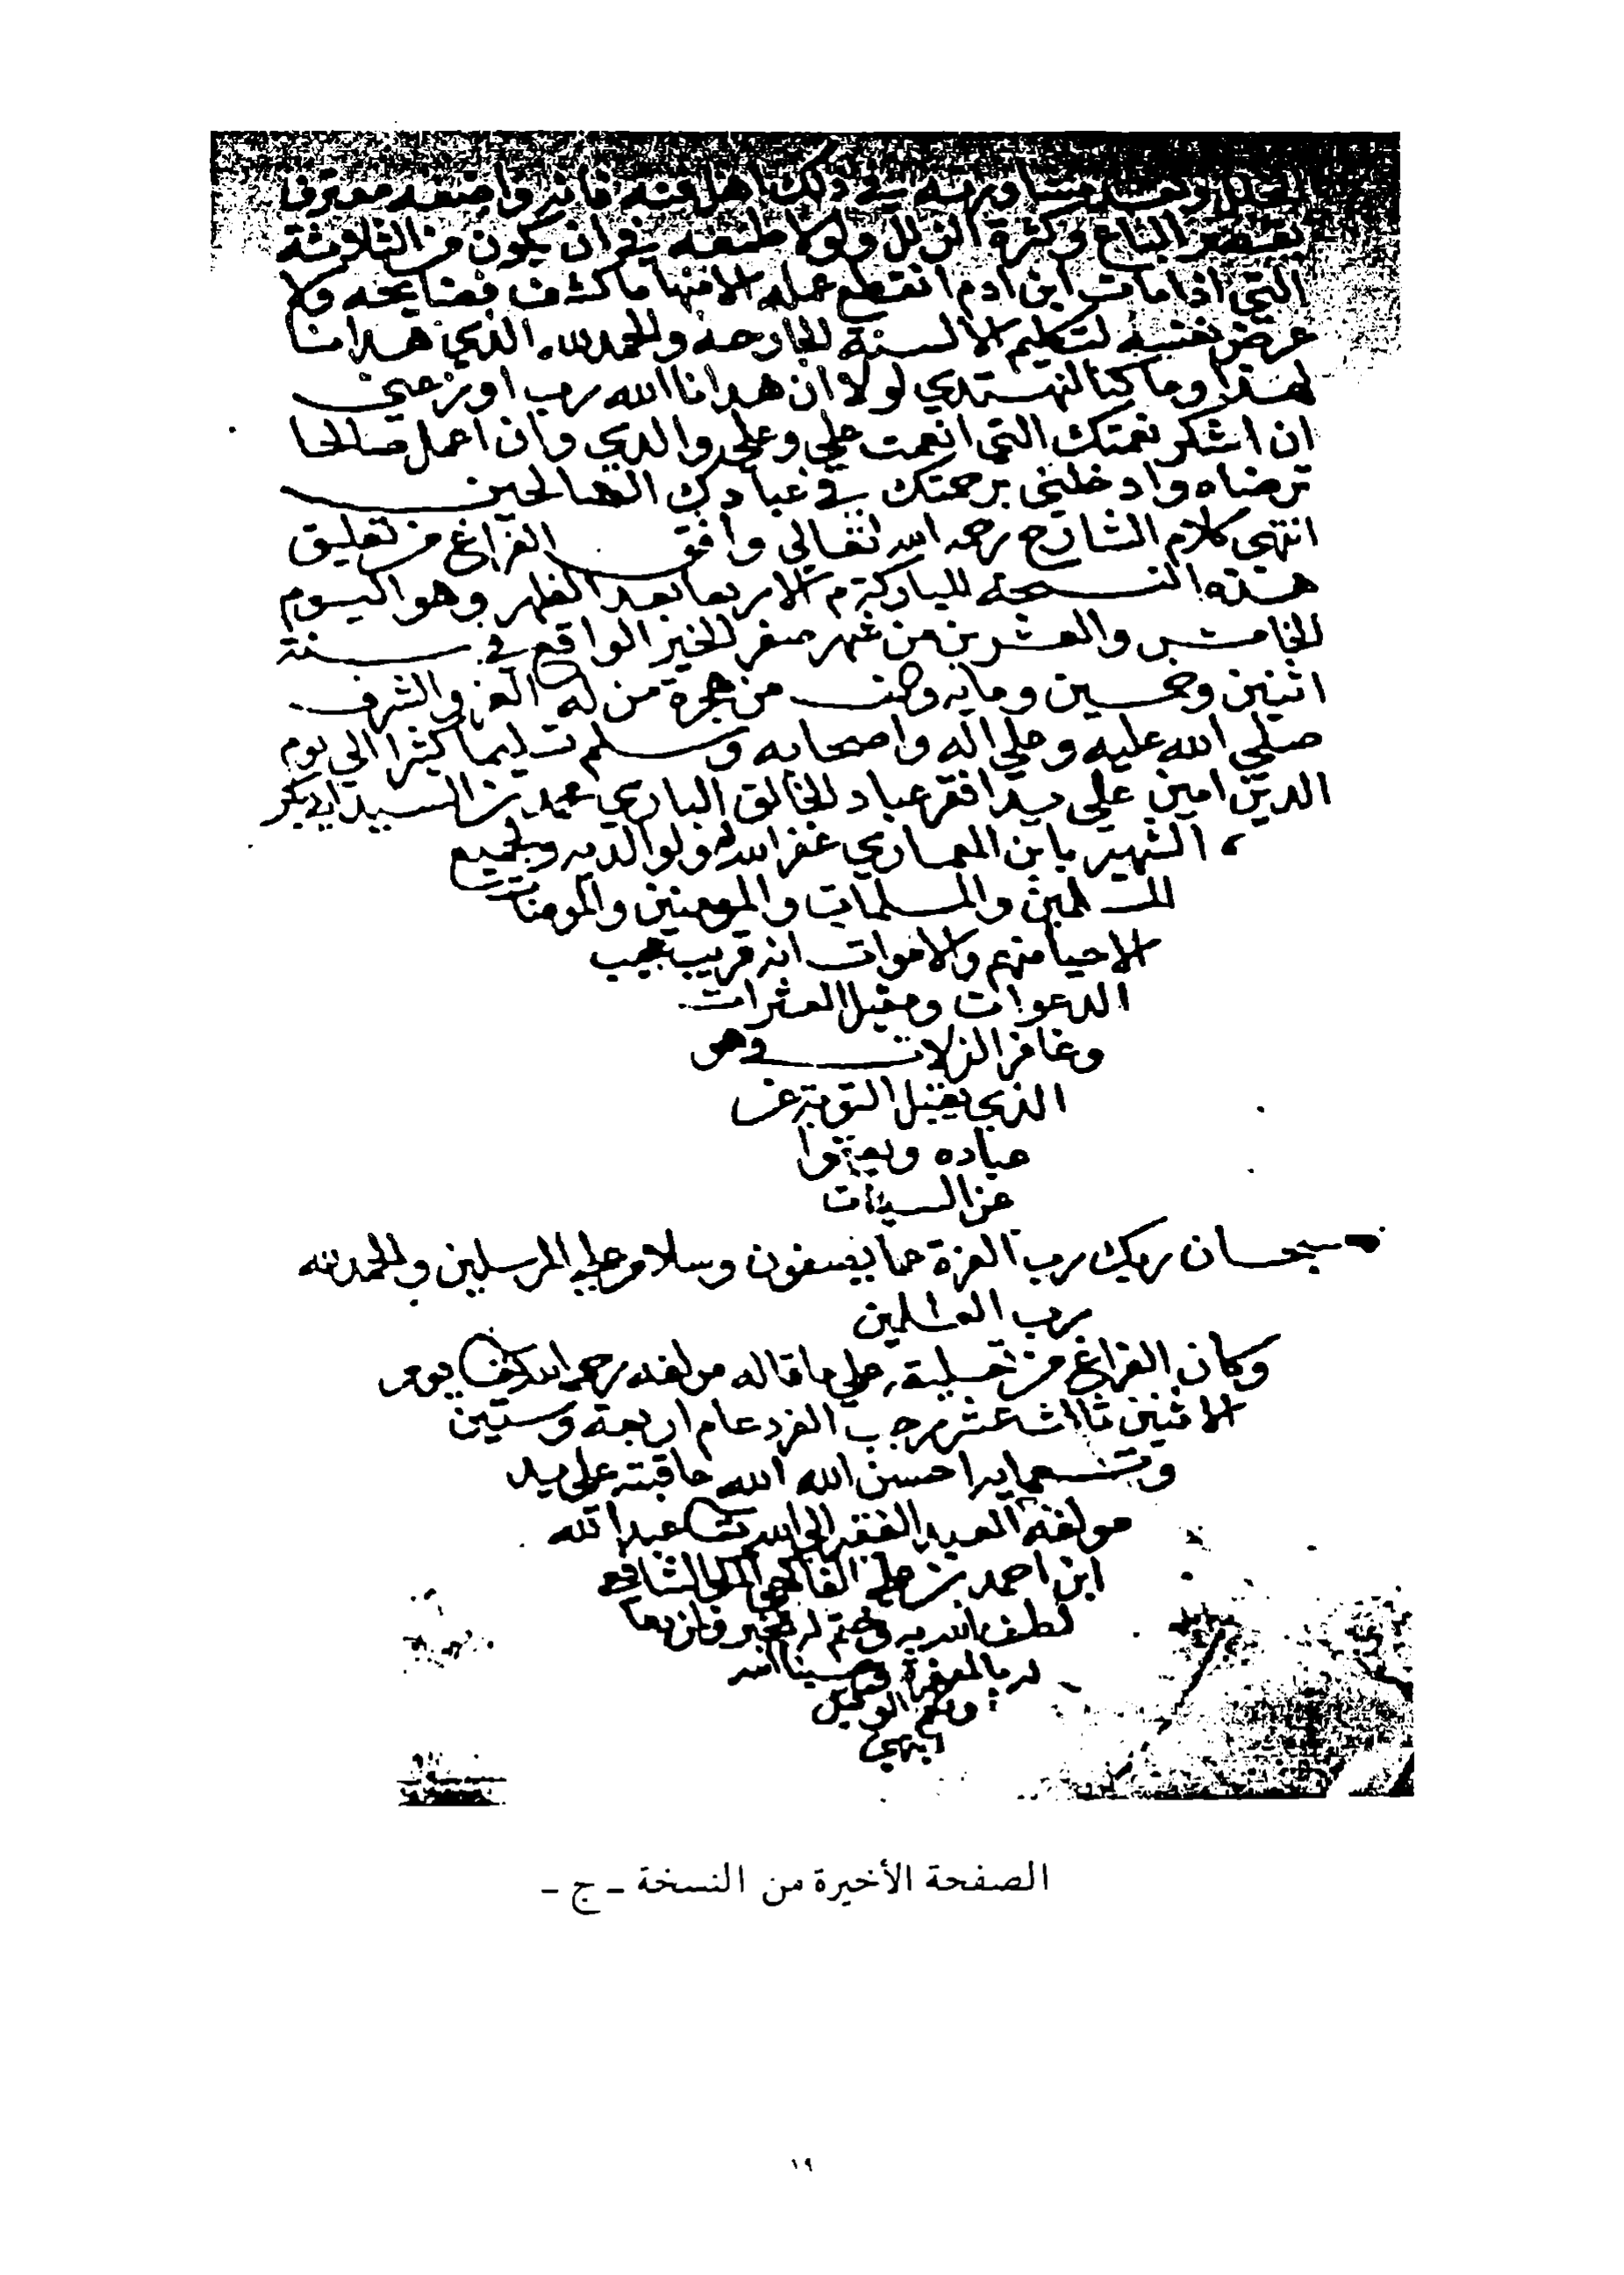 الخلل وحسن مشاورته في ذلك اهل فنه فانه واضعه معترف
بقصر الباع وكثرة الزلل ولولا طمعه في ان يكون من الثلاثة
التي اذا مات ابن ادم انقطع عمله الا منها ما كشف فضايحه ولا
عرض نفسه لتكليم الالسنة الجارحة والحمد لله الذي هدانا
لهذا وما كنا لنهتدي لولا ان هدانا الله رب اوزعني
ان اشكر نعمتك التي انعمت علي وعلى والدي وان اعمل صالحا
ترضاه وادخلني برحمتك في عبادك الصالحين
انتهى كلام الشارح رحمه الله تعالى وافق الفراغ من تعليق
هذه النسخة المباركة يوم الاربعا بعد الظهر وهو اليوم
الخامس والعشرين من شهر صفر الخير الواقع في سنة
اثنين وخمسين ومايه والف من هجرة من له العز والشرف
صلي الله عليه وعلي اله واصحابه وسلم تسليما كثيرا الي يوم
الدين امين علي يد افقر عباد الخالق الباري محمد بن السيد ابي بكر
الشهير بابن المعماري غفر الله له ولوالديه ولجميع
المسلمين والمسلمات والمومنين والمومنات
الاحيا منهم والاموات انه قريب مجيب
الدعوات ومقيل العثرات
وغافر الزلات وهو
الذي يقبل التوبة عن
عباده ويعفوا
عن السيئات
سبحان ربك رب العزة عما يصفون وسلام علي المرسلين والحمد لله
رب العالمين
وكان الفراغ من علي ما قاله مولفه رحمه الله تعالى يوم
الاثنين ثالث عشر رجب الفرد عام اربعة وستين
وتسعمايه احسن الله الله عاقبته على يد
مولفه العبد الفقير الي الله تعالى عبد الله
ابن احمد بن علي الفاكهي المكي الشافعي
لطف الله به وختم له بخير ولمن دعا
له بالمغفرة وحسبنا الله
ونعم الوكيل
انتهى
الصفحة الأخيرة من النسخة - ج -
١٩